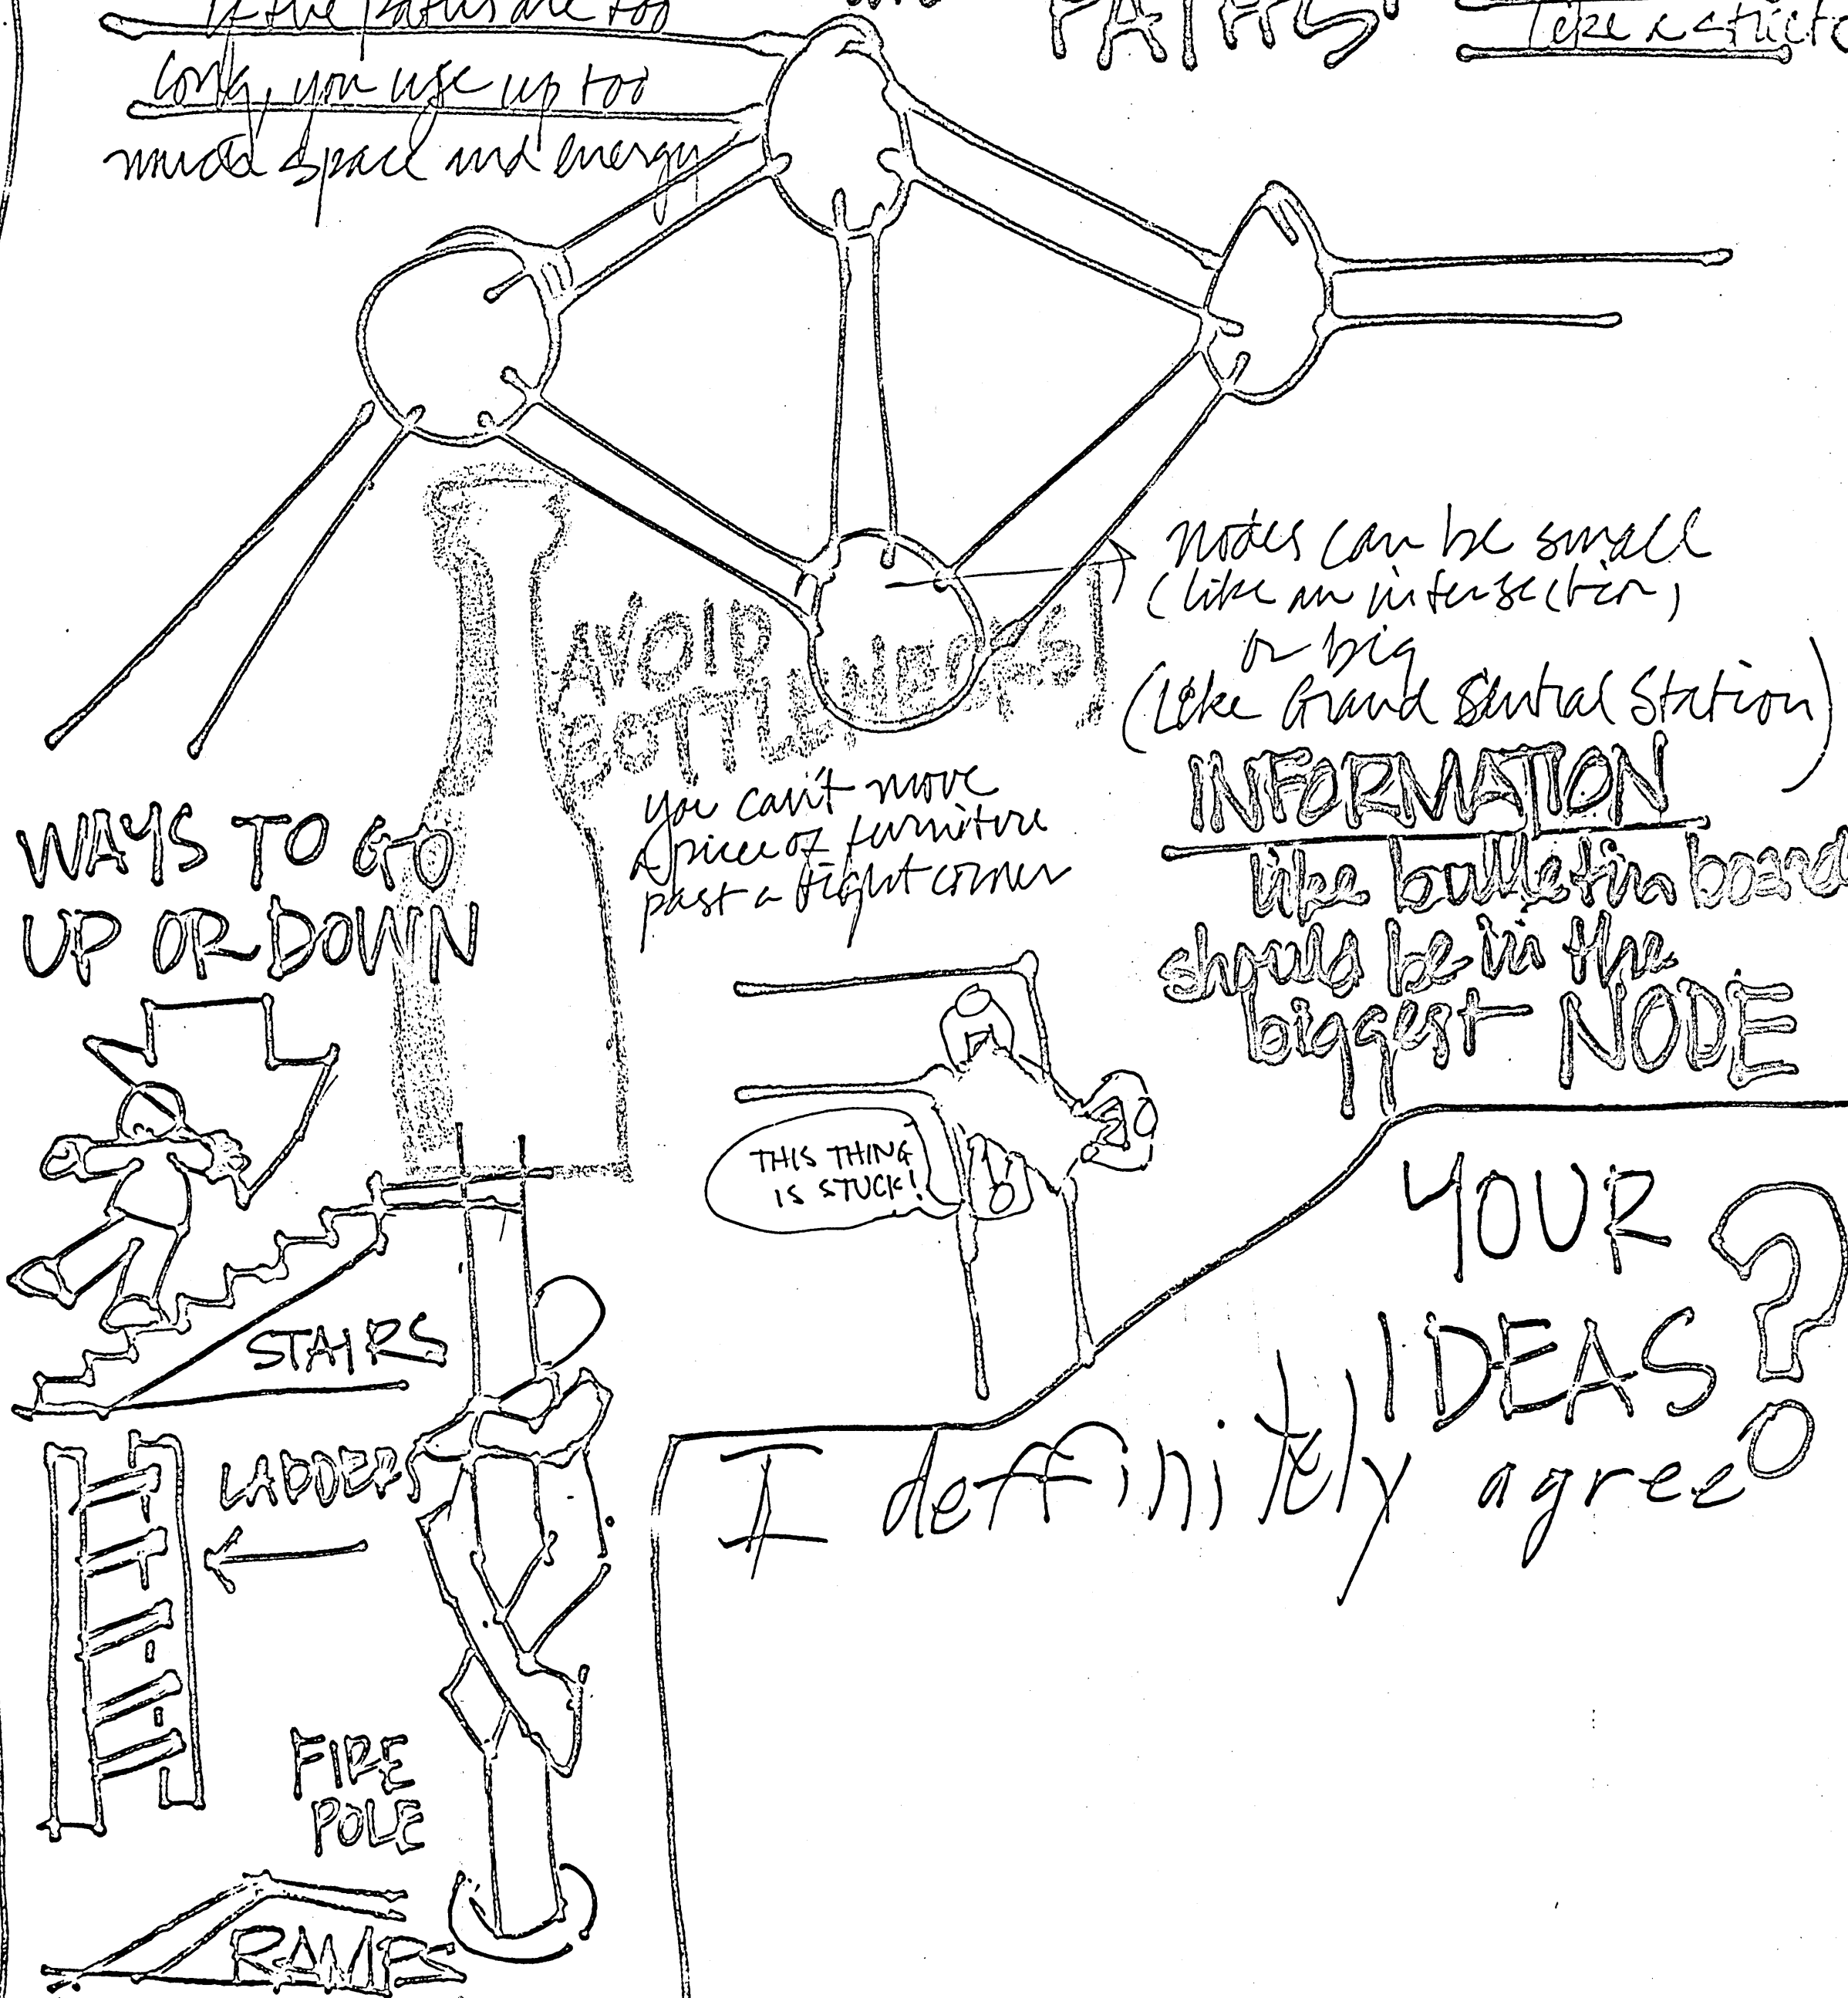 If the paths are too
long, you use up too
much space and energy
PATHS
like a stre
nodes can be small
(like an intersection)
or big
(Like Grand Sentral Station)
AVOID
BOTTLENECKS
you can't move
a piece of furniture
past a tight corner
INFORMATION
like bulletin board
should be in the
biggest NODE
WAYS TO GO
UP OR DOWN
THIS THING
IS STUCK!
STAIRS
LADDERS
FIRE
POLE
RAMPS
YOUR
IDEAS?
I deffinitely agree